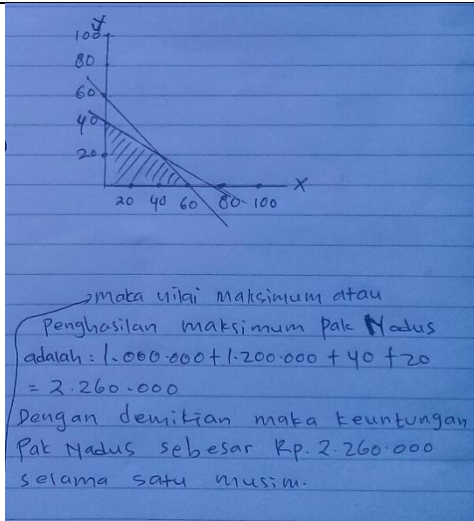 y
100
80
60
40
20
20 40 60 80 100 X
maka nilai maksimum atau
Penghasilan maksimum Pak Nadus
adalah = 1.000.000 + 1.200.000 + 40 + 20
= 2.260.000
Dengan demikian maka keuntungan
Pak Nadus sebesar Rp. 2.260.000
selama satu musim.